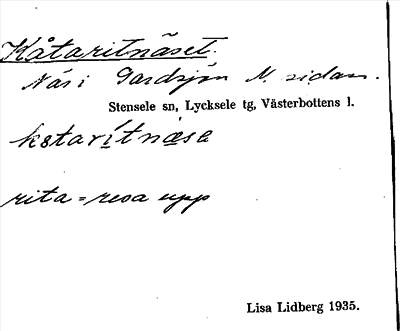 Kåtaritnäset.
Näs i Gardsjön N. sidan.
Stensele sn, Lycksele tg, Västerbottens l.
kåtarítnäse
rita = resa upp
Lisa Lidberg 1935.